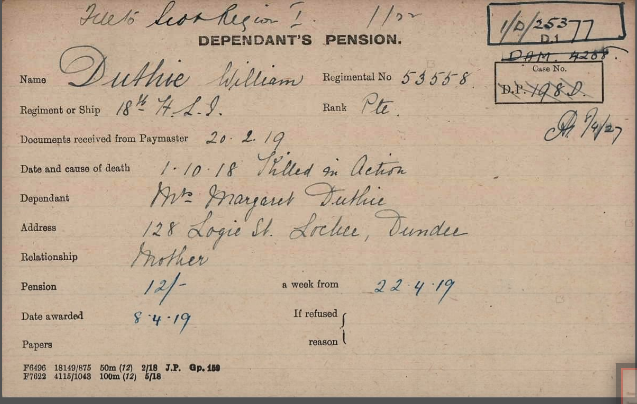 File to Scot Region I. 1/22
1/D/25377
D.1
DEPENDANT'S PENSION.
D.A.M. 4258.
Case No.
D.P. 198D.
Name Duthie William Regimental No 53558.
Regiment or Ship 18th H.L.I. Rank Pte.
7/4/27
Documents received from Paymaster 20.2.19
Date and cause of death 1.10.18 Killed in Action
Dependant Mrs Margaret Duthie
Address 128 Logie St. Lochee, Dundee
Relationship Mother
Pension 12/- a week from 22.4.19
Date awarded 8.4.19 If refused
Papers reason
F6496 18149/875 50m (12) 2/18 J.P. Gp. 150
F7622 4115/1043 100m (12) 5/18